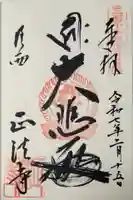 奉拝
令和七年二月十五日
大悲殿
西
正法寺